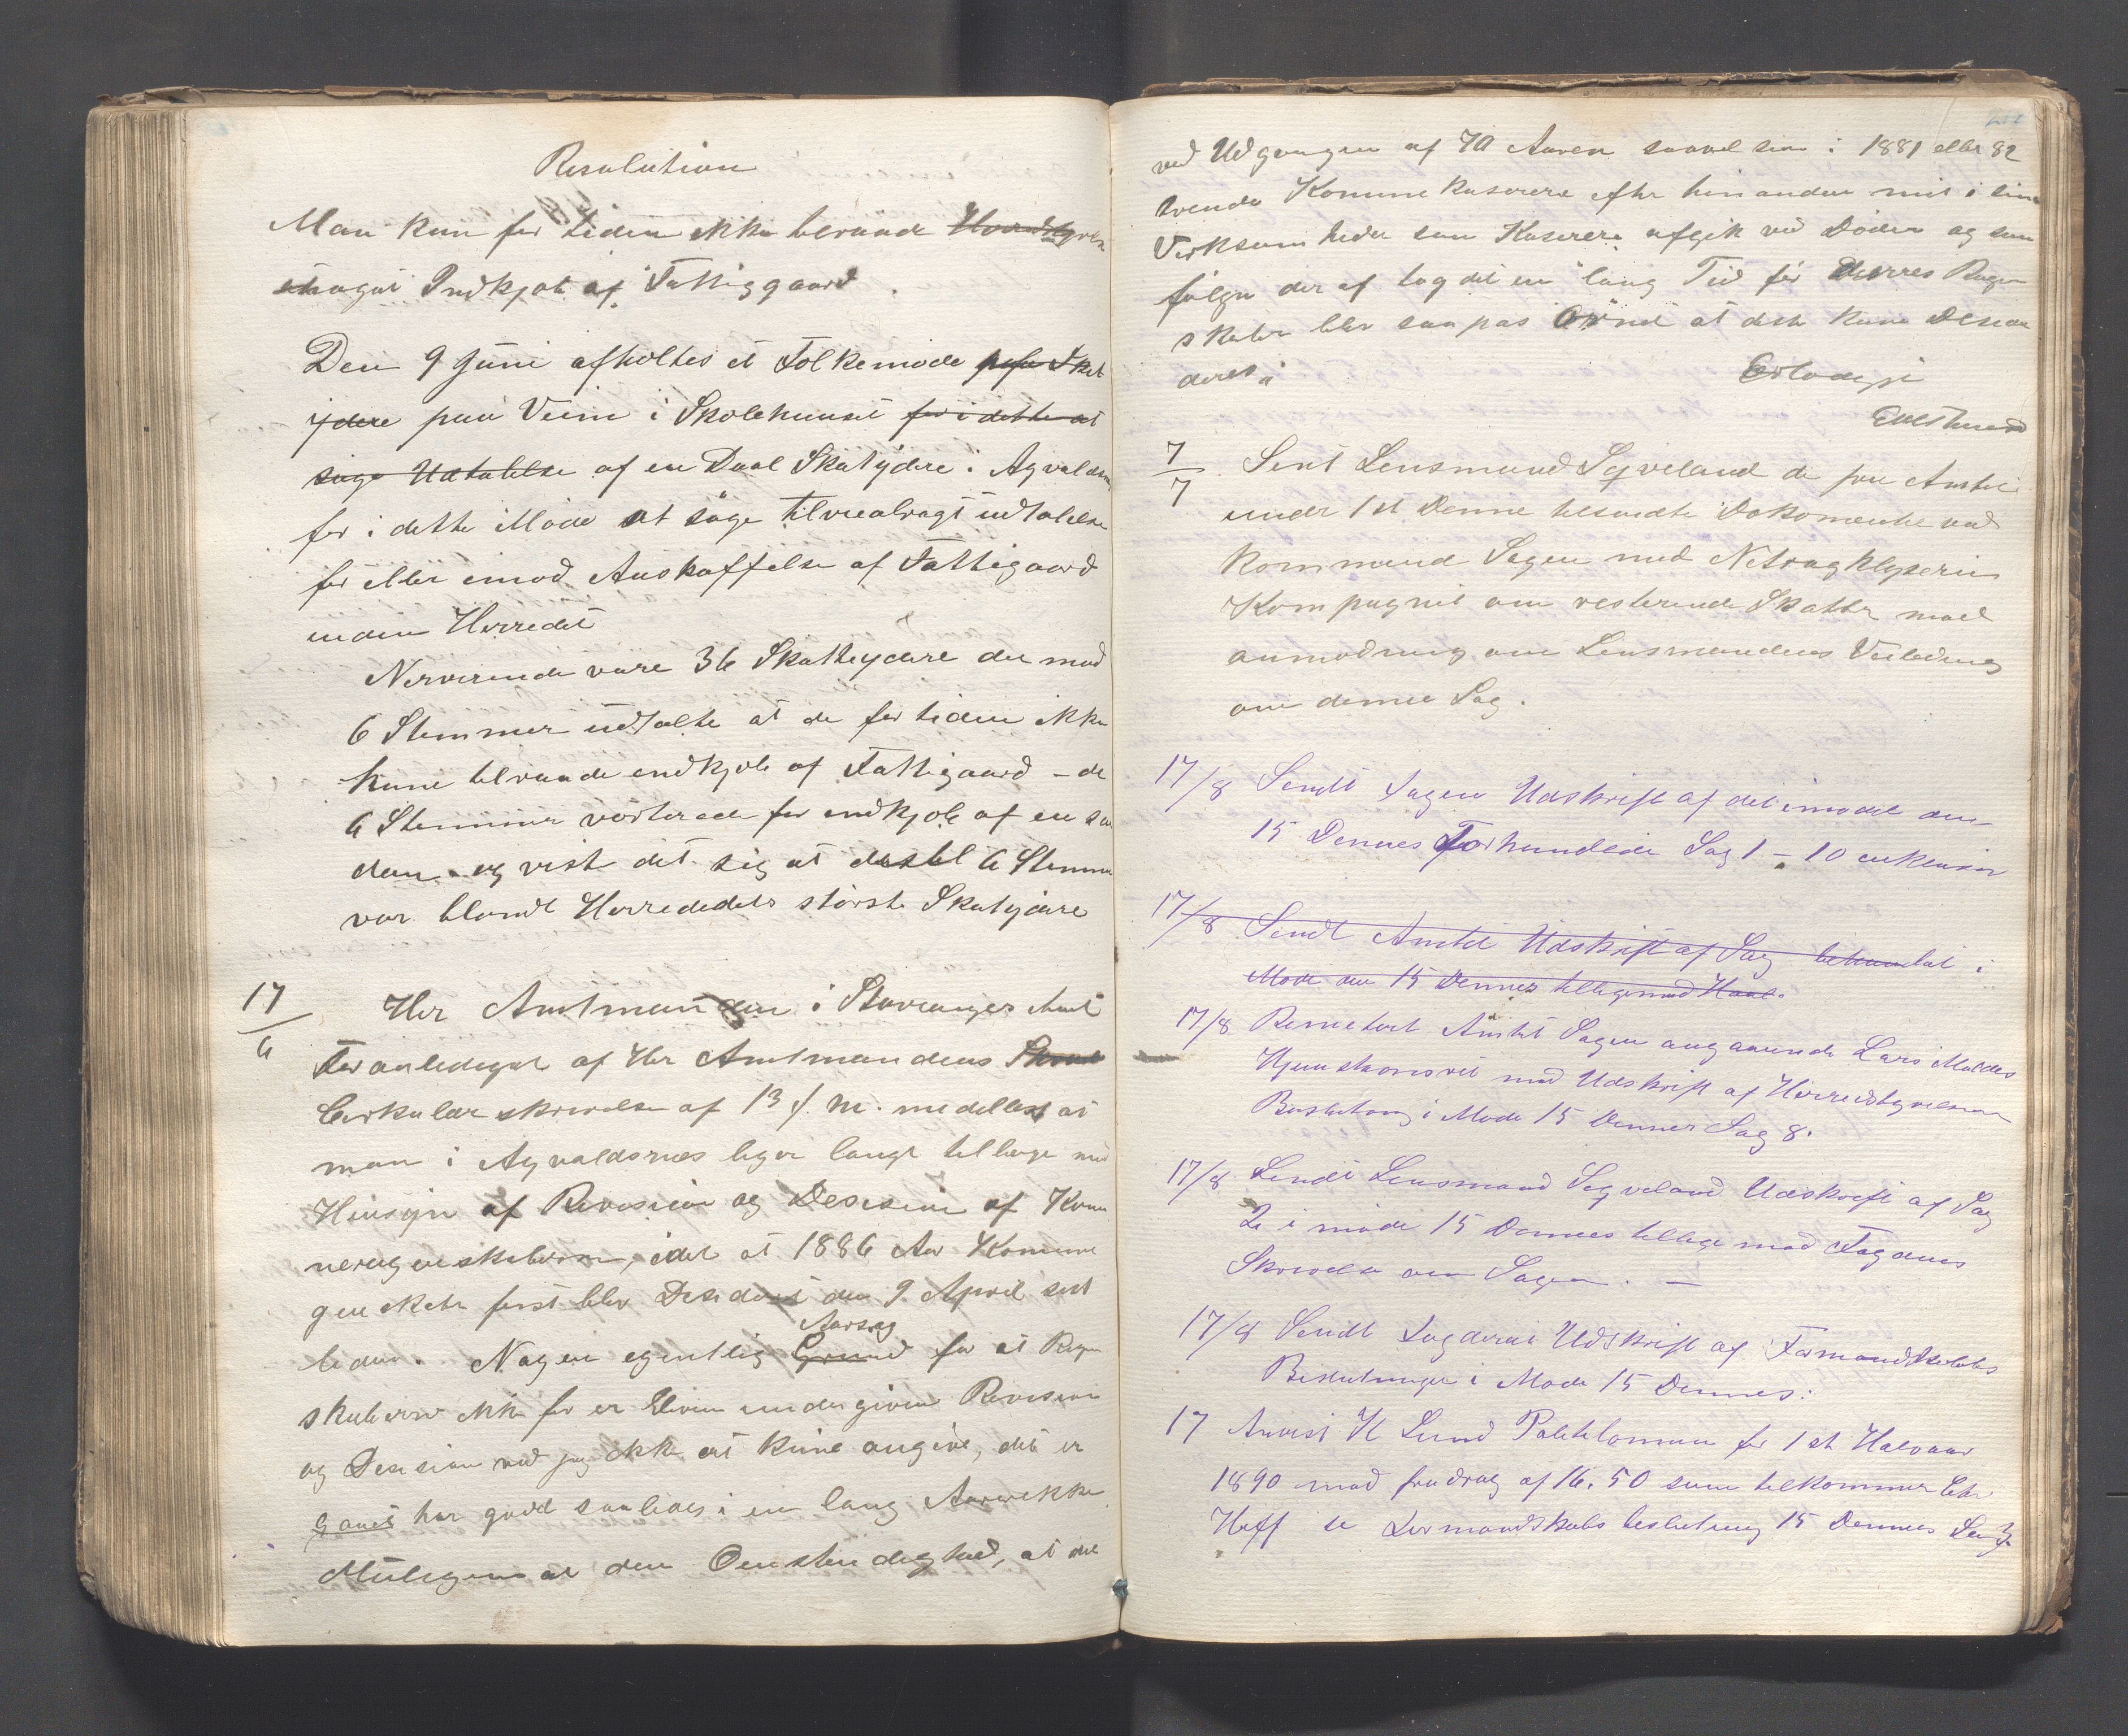 Resolution
Man kan for tiden ikke tilraade
noget Indkjøb af Fattiggaard.
Den 9 Juni afholtes et Folkemøde
ydere paa Veim i Skolehuuset for i dette at
søge Udtalelse af en Deel Skatydere i Agvaldsnes
for i dette Møde at søge tilveiebragt udtalelse
for eller imod Anskaffelse af Fattigaard
inden Herredet
Nerverende vare 36 Skatteydere der mod
6 Stemmer udtalte at de for tiden ikke
kune tilraade endkjøb af Fattigaard – de
6 Stemmer voterede for indkjøb af en saa
dan og viste det sig at disse 6 Stemmer
var blandt Herrededets største Skatydere
17/6 Hr Amtmanden i Stavanger Amt
Foranlediget af Hr Amtmandens
Cirkulærskrivelse af 13 f. m. meddelles at
man i Agvaldsnes liger langt tilbage med
Hensyn af Revision og Desision af Komu
neregenskaberne, idet at 1886 Aars Komune
genskab først blev Desideret den 9 April sist
leden. Nogen egentlig Grund Aarsag for at Regn
skaberne ikke før er bleven undergiven Revision
og Desision ved jeg ikke at kune angive, det er
gaaet har gaaet saaledes i en lang Aarrekke
Muligens at den Omstendighed, at det
ved Udgangen af 70 Aaren saavel som i 1881 eller 82
tvende Komune kaserere efter hinanden mit i sin
Virksomheder som Kaserere afgik ved Døden og som
følge der af tog det en lang Tid før Deres Regn
skaber blev saa pas Ordnet at dete kune Desi
deres
Erbødigst
7/7 Sent Lensmand Sqveland de fra Amtet
under 1st Denne tilsendte Dokomenter ved
kommende Sagen med
Kompagniet om resterende Skatter med
anmodning om Lensmandens Veiledning
om denne Sag.
17/8 Sendt Fogen Udskrift af det i mødet den
15 Dennes Forhandlede Sag 1 – 10
17/8 Sendt Amtet Udskrift af Sag behandlet i
Møde den 15 Dennes tilligemed
17/8 Remetert Amtet Sagen angaaende Lars
Hjemstavnsret med Udskrift af Herredstyrelsens
Beslutning i Møde 15 Dennes Sag 8.
17/8 Sendt Lensmand Sqveland Udskrift af Sag
2 i møde 15 Dennes tillige med Fogdens
Skrivelse om Sagen. –
17/8 Sendt Fogderiet Udskrift af Formandskabets
Beslutninger i Møde 15 Dennes:
17 Anvist K Lund for 1st Halvaar
1890 med fradrag af 16.50 som tilkommer Chr
se Formandskabs beslutning 15 Dennes Sag 3.